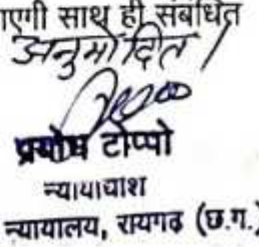 ाएगी साथ ही संबंधित
अनुमोदित /
प्रबोध टोप्पो
न्यायाधीश
न्यायालय, रायगढ़ (छ.ग.)